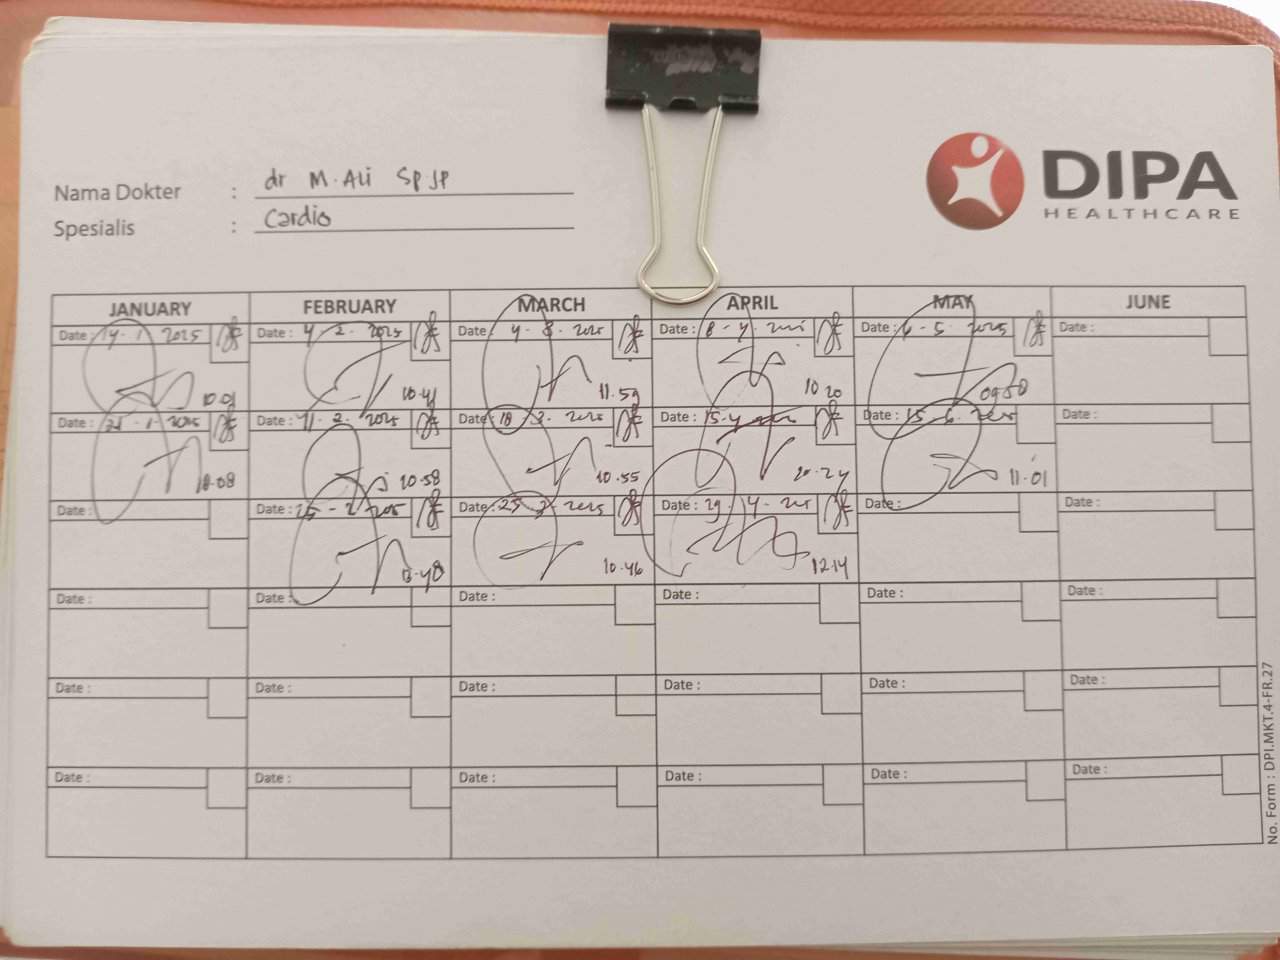 Nama Dokter : dr M. Ali SpJP
Spesialis : Cardio
DIPA
HEALTHCARE
JANUARY FEBRUARY MARCH APRIL MAY JUNE
Date : 14 - 1 2025 Date : 4 - 2 - 2025 Date : 4 - 3 - 2025 Date : 8 - 4 - 2025 Date : 6 - 5 - 2025 Date :
10.01 10.41 11.59 10.20 09.58
Date : 21 - 1 - 2025 Date : 11 - 2 - 2025 Date : 18 - 3 - 2025 Date : 15 - 4 Date : 15 2025 Date :
10.08 10.58 10.55 11.01
Date : Date : 25 - 2 - 2025 Date : 25 3 - 2025 Date : 29 - 4 - Date : Date :
10.46 12.14
Date : Date : Date : Date : Date : Date :
Date : Date : Date : Date : Date : Date :
Date : Date : Date : Date : Date : Date :
No. Form : DPI.MKT.4-FR.27